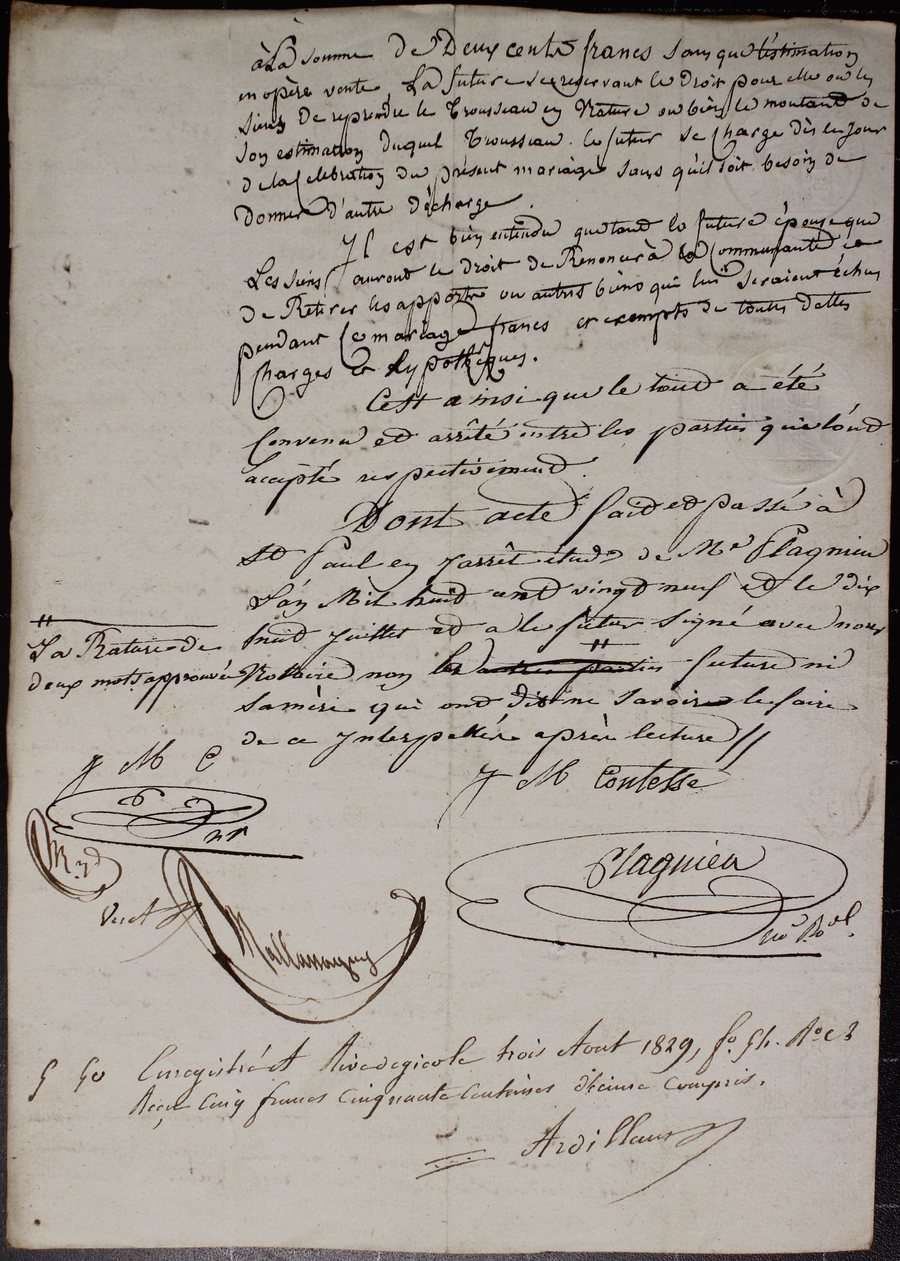 à La somme de Deux cents francs sans que l'estimation
en opère vente, La future se reservant le Droit pour elle ou les
siens De reprendre le trousseau en Nature ou bien le montant de
son estimation duquel trousseau le futur se charge dès le jour
de la Celebration du présent mariage sans qu'il soit besoin de
donner d'autre décharge.
Il est bien entendu que tant la future épouse que
Les siens auront le droit de Renoncer à la Communauté et
de Retirer les apports ou autres biens qui lui seraient échus
pendant le mariage francs et exempts de toutes dettes
charges et hypothèques.
C'est ainsi que le tout a été
Convenu et arrêté entre les parties qui l'ont
accepté respectivement.
Dont acte fait et passé à
St Paul en Jarrêt étude de Me Plagnieu
L'an Mil huit cent vingt neuf et le dix
huit Juillet et a le futur signé avec nous
Notaire non les autres parties future ni
sa mère qui ont dit ne savoir le faire
de ce Interpellée après lecture //
La Rature de
deux mots approuvée
J M C
J M Contesse
M
Plagnieu
no Ral.
5 50 Enregistré à Rivedegier le trois Aout 1829, fo 54. Ro c 3
Reçu Cinq francs Cinquante Centimes dixieme Compris.
Ardillon